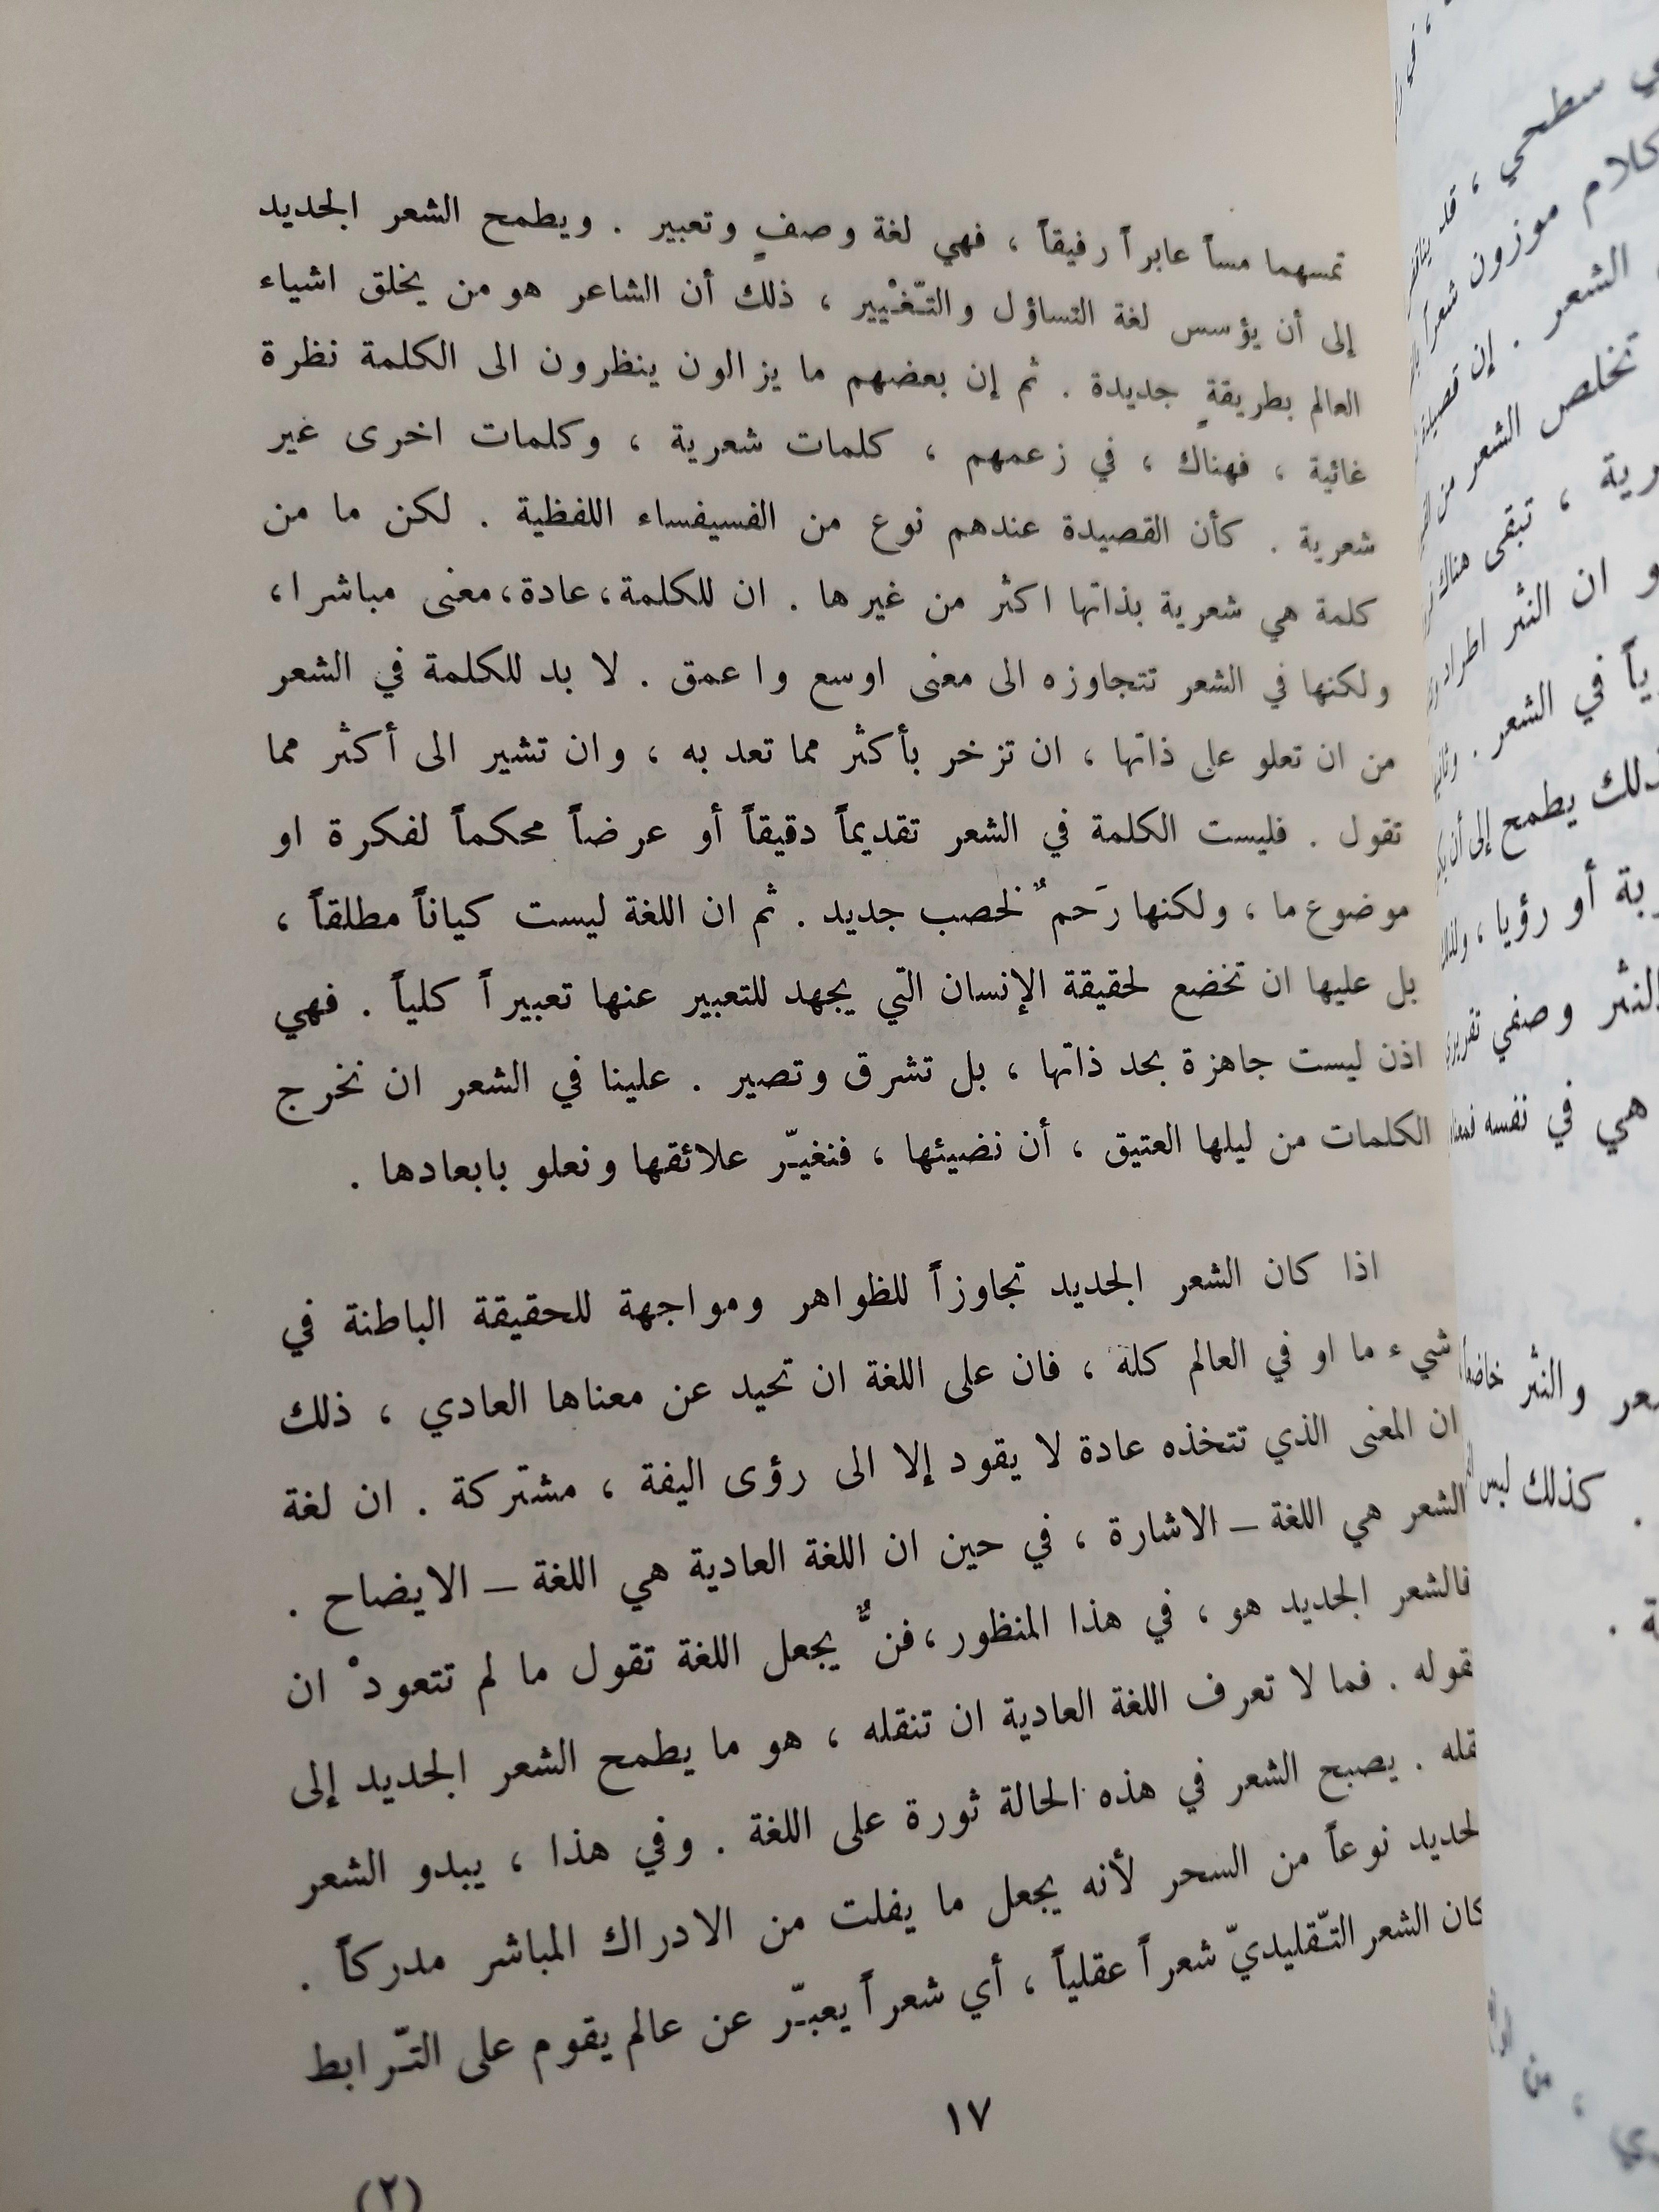 تمسهما مساً عابراً رفيقاً ، فهي لغة وصفٍ وتعبير . ويطمح الشعر الجديد
إلى أن يؤسس لغة التساؤل والتّغْيير ، ذلك أن الشاعر هو من يخلق اشياء
العالم بطريقةٍ جديدة . ثم إن بعضهم ما يزالون ينظرون الى الكلمة نظرة
غائية ، فهناك ، في زعمهم ، كلمات شعرية ، وكلمات اخرى غير
شعرية . كأن القصيدة عندهم نوع من الفسيفساء اللفظية . لكن ما من
كلمة هي شعرية بذاتها اكثر من غيرها . ان للكلمة ، عادة ، معنى مباشرا ،
ولكنها في الشعر تتجاوزه الى معنى اوسع واعمق . لا بد للكلمة في الشعر
من ان تعلو على ذاتها ، ان تزخر بأكثر مما تعد به ، وان تشير الى أكثر مما
تقول . فليست الكلمة في الشعر تقديماً دقيقاً أو عرضاً محكماً لفكرة او
موضوع ما ، ولكنها رَحمٌ لخصب جديد . ثم ان اللغة ليست كياناً مطلقاً ،
بل عليها ان تخضع لحقيقة الإنسان التي يجهد للتعبير عنها تعبيراً كلياً . فهي
اذن ليست جاهزة بحد ذاتها ، بل تشرق وتصير . علينا في الشعر ان نخرج
الكلمات من ليلها العتيق ، أن نضيئها ، فنغيّر علائقها ونعلو بابعادها .
اذا كان الشعر الجديد تجاوزاً للظواهر ومواجهة للحقيقة الباطنة في
شيء ما او في العالم كله ، فان على اللغة ان تحيد عن معناها العادي ، ذلك
ان المعنى الذي تتخذه عادة لا يقود إلا الى رؤى اليفة ، مشتركة . ان لغة
الشعر هي اللغة – الاشارة ، في حين ان اللغة العادية هي اللغة – الايضاح .
فالشعر الجديد هو ، في هذا المنظور ، فنٌّ يجعل اللغة تقول ما لم تتعودْ ان
تقوله . فما لا تعرف اللغة العادية ان تنقله ، هو ما يطمح الشعر الجديد إلى
نقله . يصبح الشعر في هذه الحالة ثورة على اللغة . وفي هذا ، يبدو الشعر
الجديد نوعاً من السحر لأنه يجعل ما يفلت من الادراك المباشر مدركاً .
كان الشعر التّقليديّ شعراً عقلياً ، أي شعراً يعبّر عن عالم يقوم على التّرابط
١٧
(٢)
سطحي ، قد
كلام موزون شعراً
الشعر . إن قصيدة
تخلص الشعر من
تبقى هناك
و ان النثر اطراد
في الشعر .
ذلك يطمح إلى أن
أو رؤيا ،
النثر وصفي
هي في نفسه
والنثر
. كذلك ليس